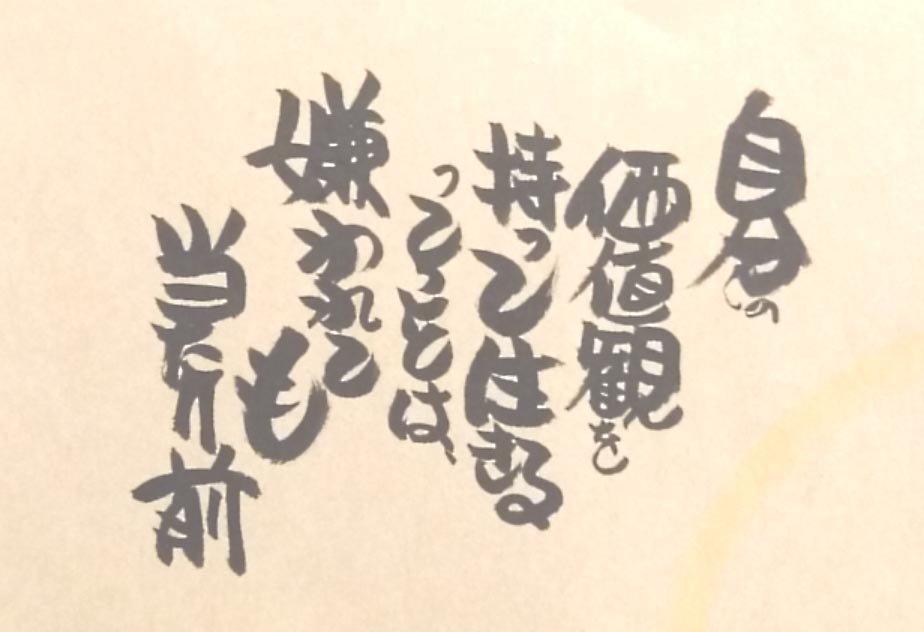 自分の
価値観を
持って生きる
ってことは、
嫌われても
当たり前